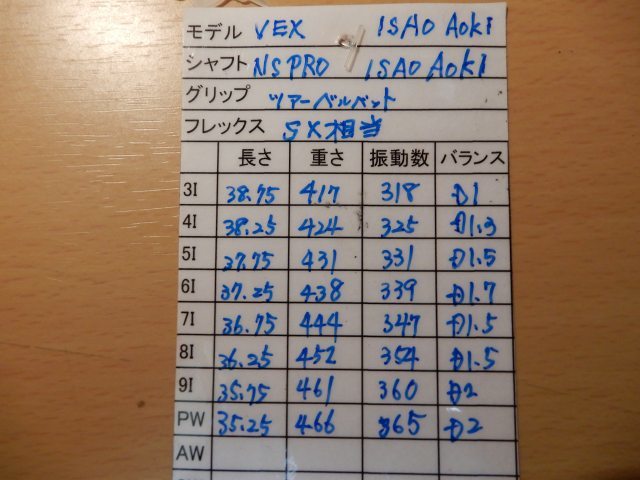 モデル VEX ISAO AOKI
シャフト NS PRO ISAO AOKI
グリップ ツアーベルベット
フレックス SX相当
長さ 重さ 振動数 バランス
3I 38.75 417 318 D1
4I 38.25 424 325 D1.3
5I 37.75 431 331 D1.5
6I 37.25 438 339 D1.7
7I 36.75 444 347 D1.5
8I 36.25 452 354 D1.5
9I 35.75 461 360 D2
PW 35.25 466 365 D2
AW